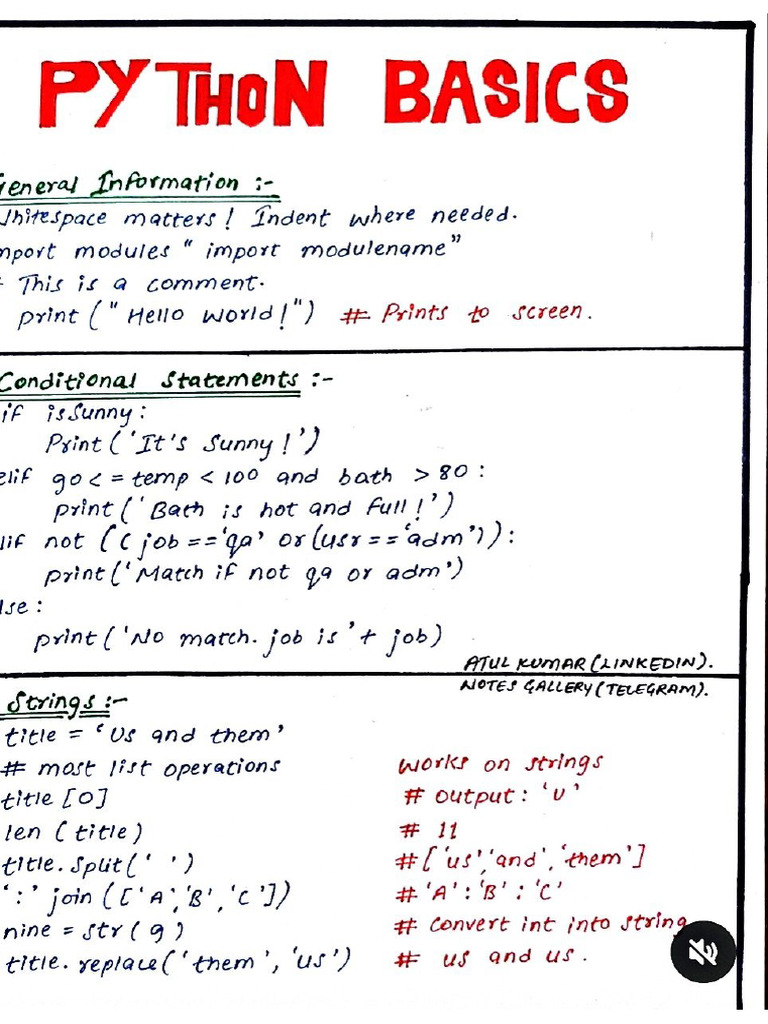 PYTHON BASICS
General Information :-
Whitespace matters! Indent where needed.
mport modules " import modulename"
# This is a comment.
print ("Hello World!") # Prints to screen.
Conditional Statements :-
if isSunny:
Print ('It's Sunny!')
elif 90 <= temp < 100 and bath > 80 :
print ('Bath is hot and full!')
lif not ((job == 'qa' or (usr == 'adm')):
print ('Match if not qa or adm')
lse :
print ('No match. job is' + job)
ATUL KUMAR (LINKEDIN).
NOTES GALLERY (TELEGRAM).
Strings :-
title = 'Us and them'
# most list operations works on strings
title [0] # output : 'U'
len (title) # 11
title. Split (' ') # ['us','and','them']
':' join (['A','B','C']) # 'A' : 'B' : 'C'
nine = str (9) # Convert int into string
title. replace ('them', 'us') # us and us.